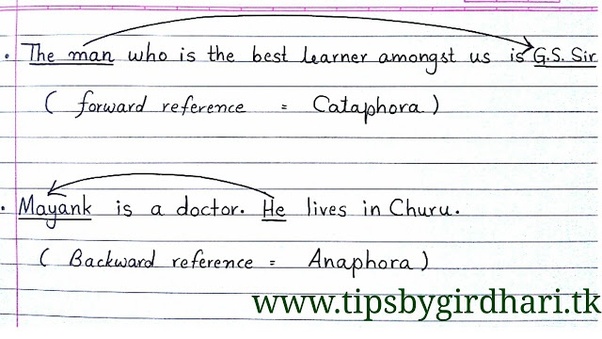 . The man who is the best learner amongst us is G.S. Sir
( forward reference = Cataphora )
. Mayank is a doctor. He lives in Churu.
( Backward reference = Anaphora )
www.tipsbygirdhari.tk